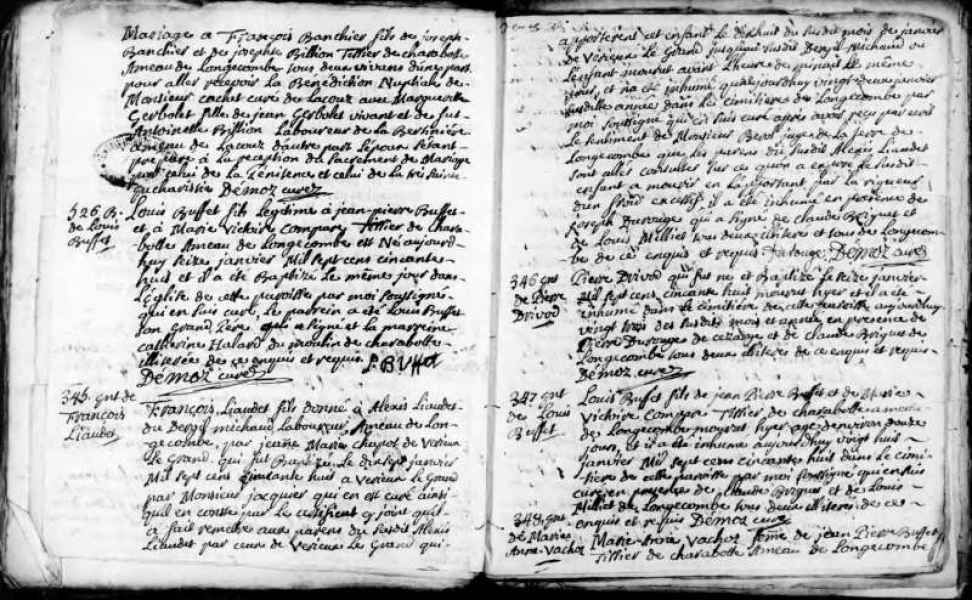 Mariage a François Banchier fils de joseph
Banchier et de josephte Billion Tillier de charabotte
Ameau de Longecombe tous deux vivans d'une part
pour aller recevoir la Bénédiction Nuptiale de
Monsieur cochet curé de Lacoux avec Marguerite
Gerbolet fille de jean Gerbolet vivant et de fut
Antoinette Billion Laboureur de La Bertinière
ameau de Lacoux d'autre part Lépoux s'étant
préparé à la reception du Sacrement de Mariage
par celui de La Pénitence et celui de la très sainte
eucharistie Démoz curez
526 B.
de Louis
Buffet
Louis Buffet fils Legitime à jean-pierre Buffet
et à Marie Victoire Compare Tillier de chara-
botte Ameau de Longecombe est Né aujourd-
huy seize janvier Mil sept cens cincante-
huit et il a été Baptizé le même jour dans
L'église de cette paroisse par moi soussigné
qui en suis curé, Le parrein a été Louis Buffet
son Grand Père, qui a signé et la marreine
catherine Halard du moulin de charabotte
illiterée de ce enquis et requis L: BUffet
Démoz curez
345. ent de
François
Liaudet
François Liaudet fils donné à Alexis Liaudet
du Bergil michaud Laboureur, Ameau de Lon-
gecombe, par jeane Marie chapot de Verieux
Le Grand, qui fut Baptizé Le dixsept janvier
Mil sept cens cincante huit a Verieux Le Grand
par Monsieur jacquier qui en est curé ainsi
qu'il en conste par Le certificat cy joint qu'il
a fait remettre aux parens du susdit Alexis
Liaudet par ceux de Verieux Le Grand qui
apporterent cet enfant le dixhuit du susdit mois de janvier
de Verieux Le Grand jusqu'au susdit Bergil Michaud ou
L'enfant mourut avant L'heure de minuit le même
jour, et n'a été inhumé qu'aujourdhuy vingt deux janvier
susdite année dans le cimitière de Longecombe par
moi soussigné qui en suis curé après avoir reçu par écrit
Le sentiment de Monsieur juge de la terre de
Longecombe que les parens du susdit Alexis Liaudet
sont allés consulter sur ce qu'on a exposé le susdit
enfant a mourir en La portant par la rigueur
d'un froid excessif, il a été inhumé en présence de
joseph Durouge qui a signé de claude Brigues et
de Louis Milliet tous deux illiteres et tous de Longecom-
be de ce enquis et requis Durouge Démoz curez
346 ent
de Pierre
Drivod
Pierre Drivod qui fut né et Baptizé Le seize janvier
Mil sept cens cincante huit mourut hyer et il a été
inhumé dans le cimitière de cette paroisse aujourdhuy
vingt trois des susdits mois et année en présence de
Pierre Durouges de et de claude Brigues de
Longecombe tous deux illiteres de ce enquis et requis
Démoz curez
347 ent
de Louis
Buffet
Louis Buffet fils de jean Pierre Buffet et de Marie
Victoire Compare Tillier de charabotte ameau
de Longecombe mourut hyer age d'environ douze
jours, et il a été inhumé aujourdhuy vingt huit
janvier Mil sept cens cincante huit dans le cimi-
tière de cette paroisse par moi soussigné qui en suis
curé en présence de claude Brigues et de Louis
Milliet de Longecombe tous deux illiteres de ce
enquis et requis Démoz curé
348 ent
de Marie
Anne Vachoz
Marie-Anne Vachoz feme de jean Pierre Buffet
Tillier de charabotte Ameau de Longecombe